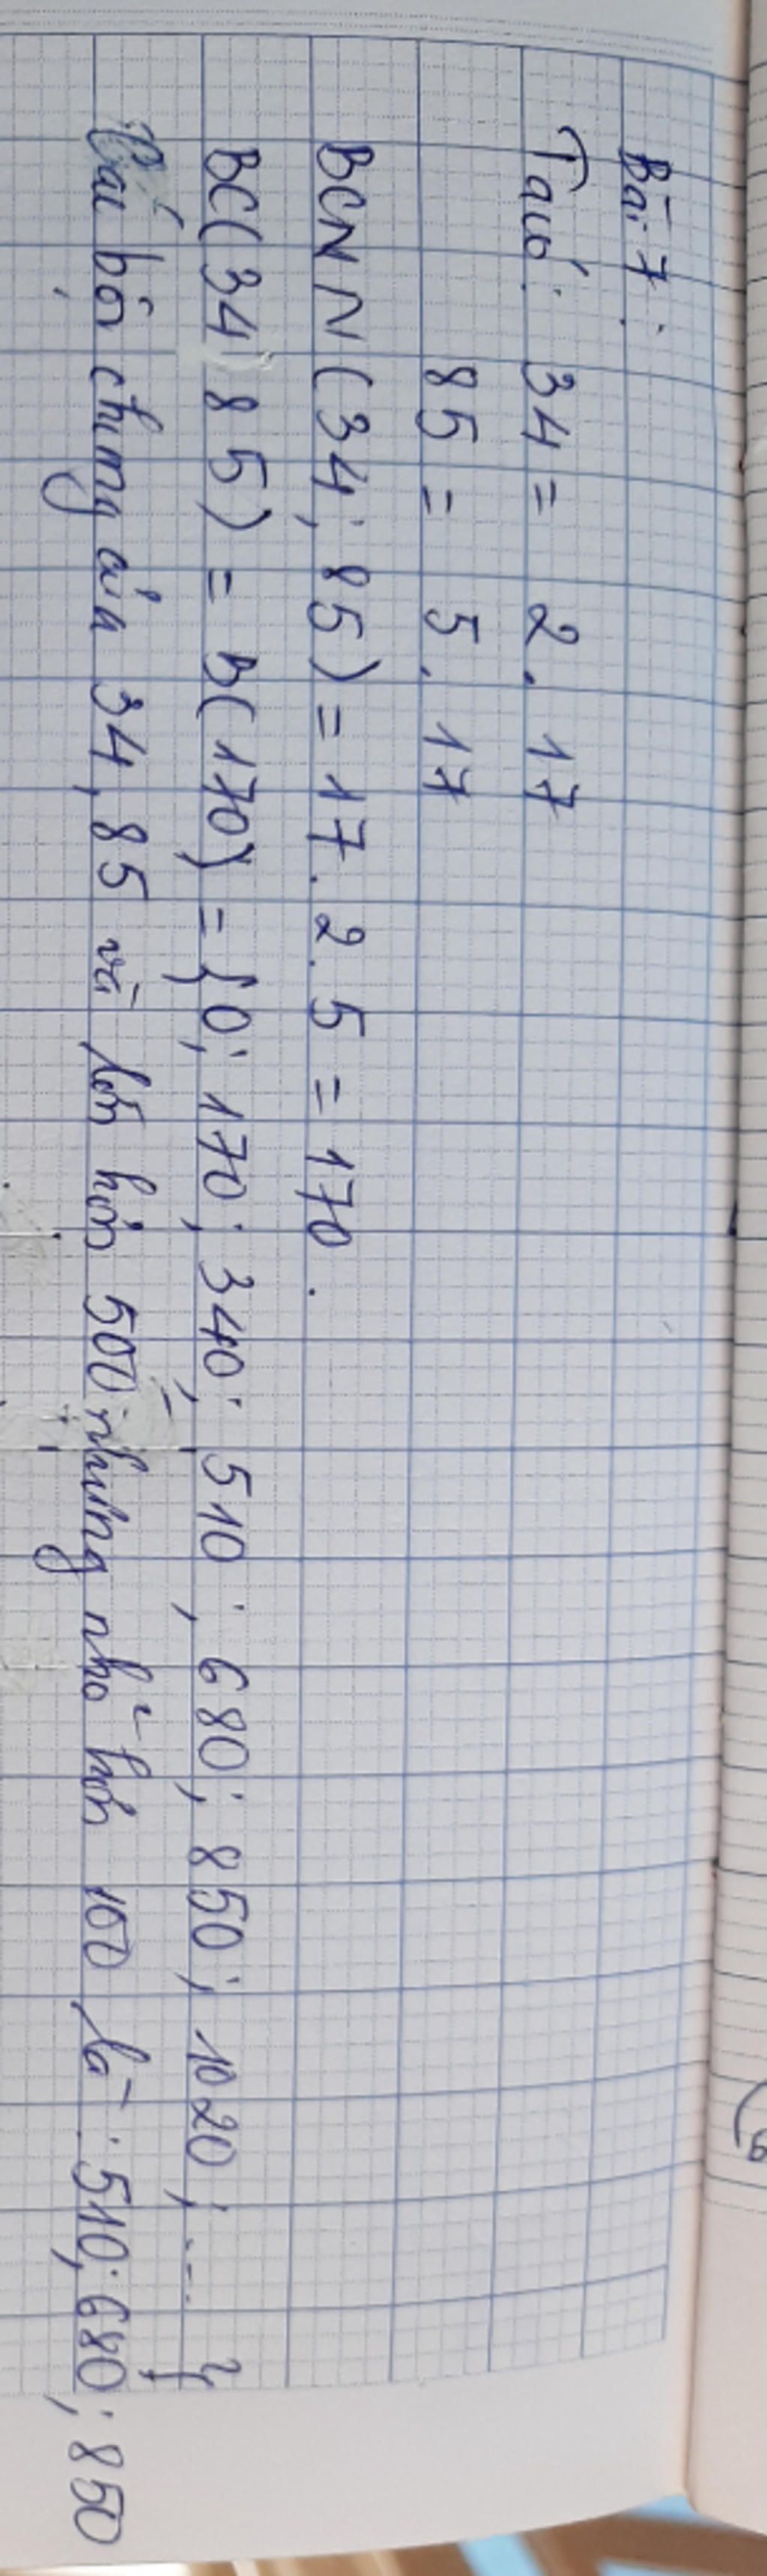 Bài 7:
Ta có: 34 = 2.17
85 = 5.17
BCNN(34; 85) = 17.2.5 = 170.
BC(34 85) = B(170) = {0; 170; 340; 510; 680; 850; 1020; ... }
Các bội chung của 34, 85 và lớn hơn 500 nhưng nhỏ hơn 100 là: 510; 680; 850